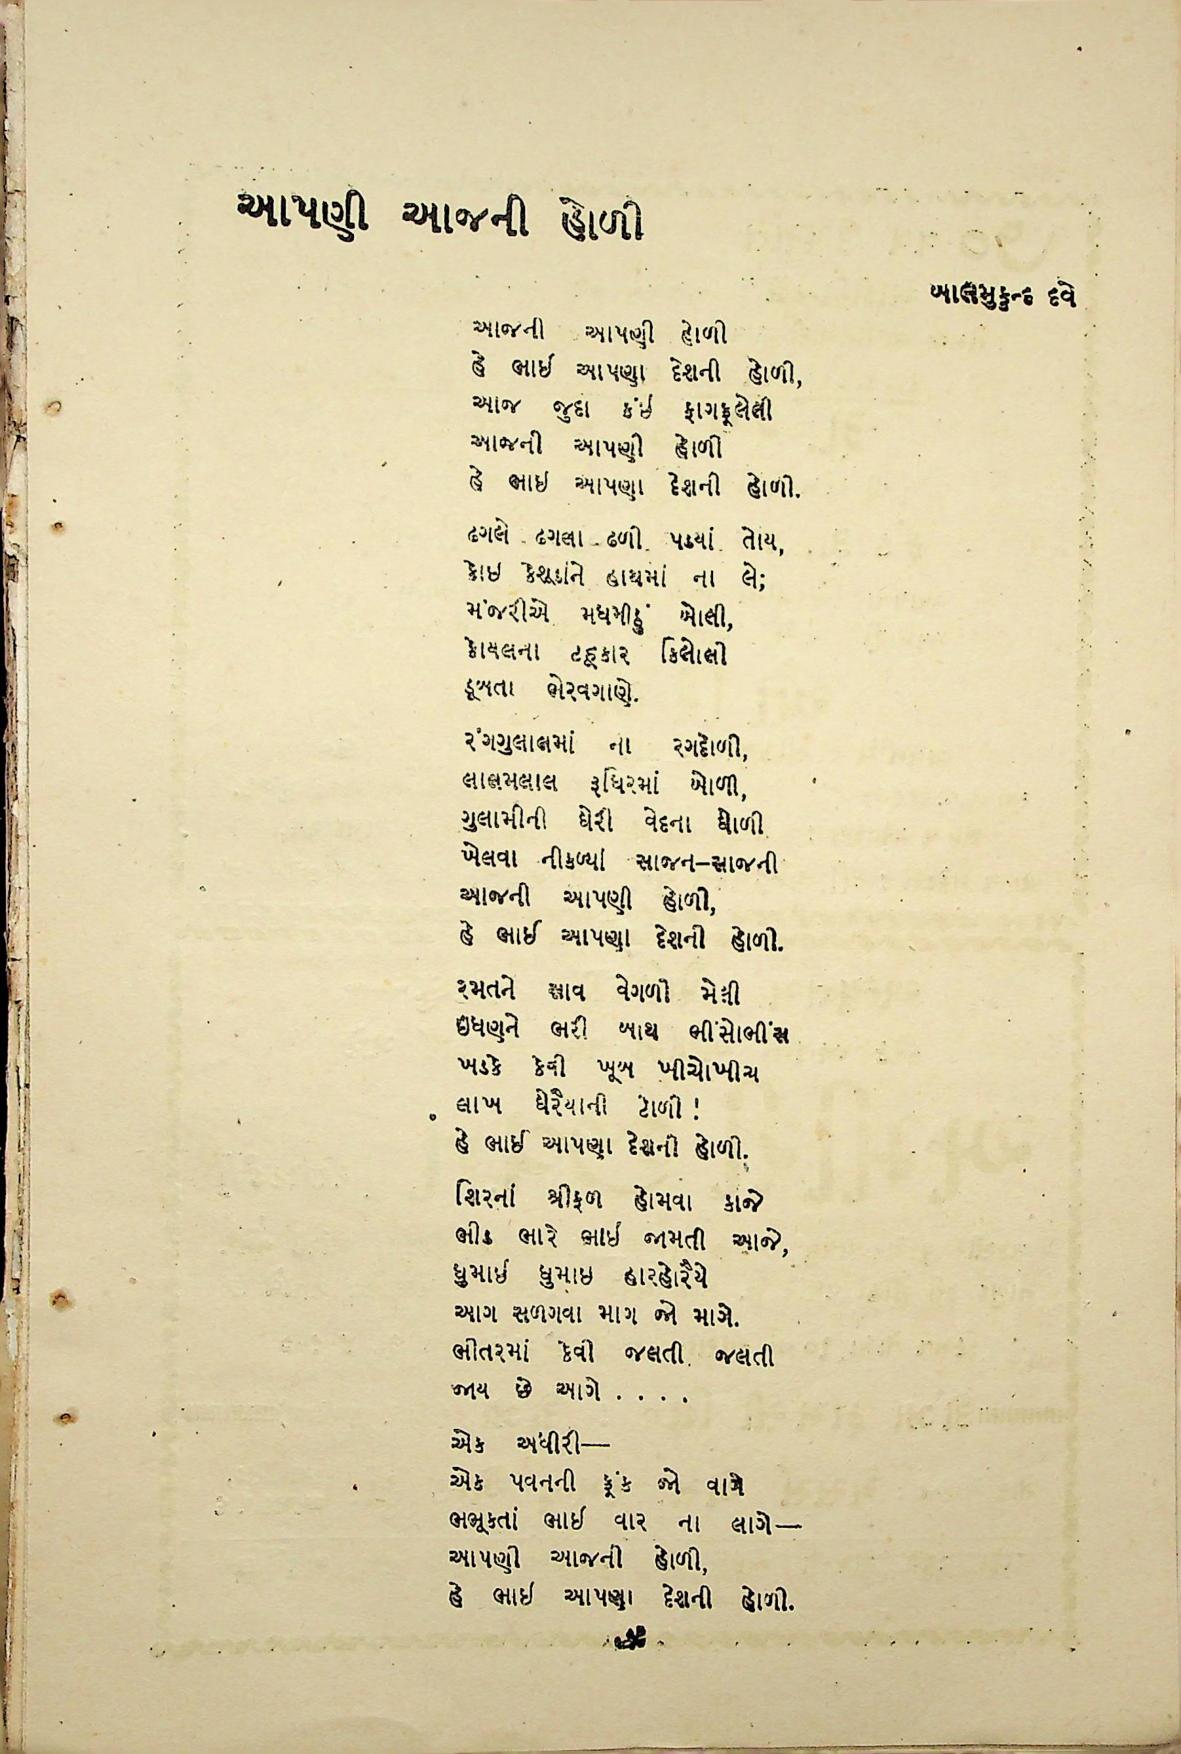 આપણી આજની હોળી
બાલમુકુન્દ દવે
આજની આપણી હોળી
હે ભાઈ આપણા દેશની હોળી,
આજ જુદા કંઈ ફાગફૂલેલી
આજની આપણી હોળી
હે ભાઇ આપણા દેશની હોળી.
ઢગલે ઢગલા ઢળી પડયાં તોય,
કોઇ કેશૂડાંને હાથમાં ના લે;
મંજરીએ મધમીઠું બોલી,
કોયલના ટહૂકાર કિલોલી
ડૂબતા ભેરવગાણે.
રંગગુલાલમાં ના રગદોળી,
લાલમલાલ રૂધિરમાં બોળી,
ગુલામીની ઘેરી વેદના ઘોળી
ખેલવા નીકળ્યાં સાજન–સાજની
આજની આપણી હોળી,
હે ભાઈ આપણા દેશની હોળી.
રમતને સાવ વેગળી મેલી
ઇંધણને ભરી બાથ ભીંસોભીંસ
ખડકે કેવી ખૂબ ખીચોખીચ
લાખ ઘેરૈયાની ટોળી !
હે ભાઈ આપણા દેશની હોળી.
શિરનાં શ્રીફળ હોમવા કાજે
ભીડ ભારે ભાઇ જામતી આજે,
ધુમાઈ ધુમાઇ હારહોરૈયે
આગ સળગવા માગ જો માગે.
ભીતરમાં કેવી જલતી જલતી
જાય છે આગે . . . .
એક અધીરી—
એક પવનની ફૂંક જો વાગે
ભભૂકતાં ભાઈ વાર ના લાગે—
આપણી આજની હોળી,
હે ભાઇ આપણા દેશની હોળી.